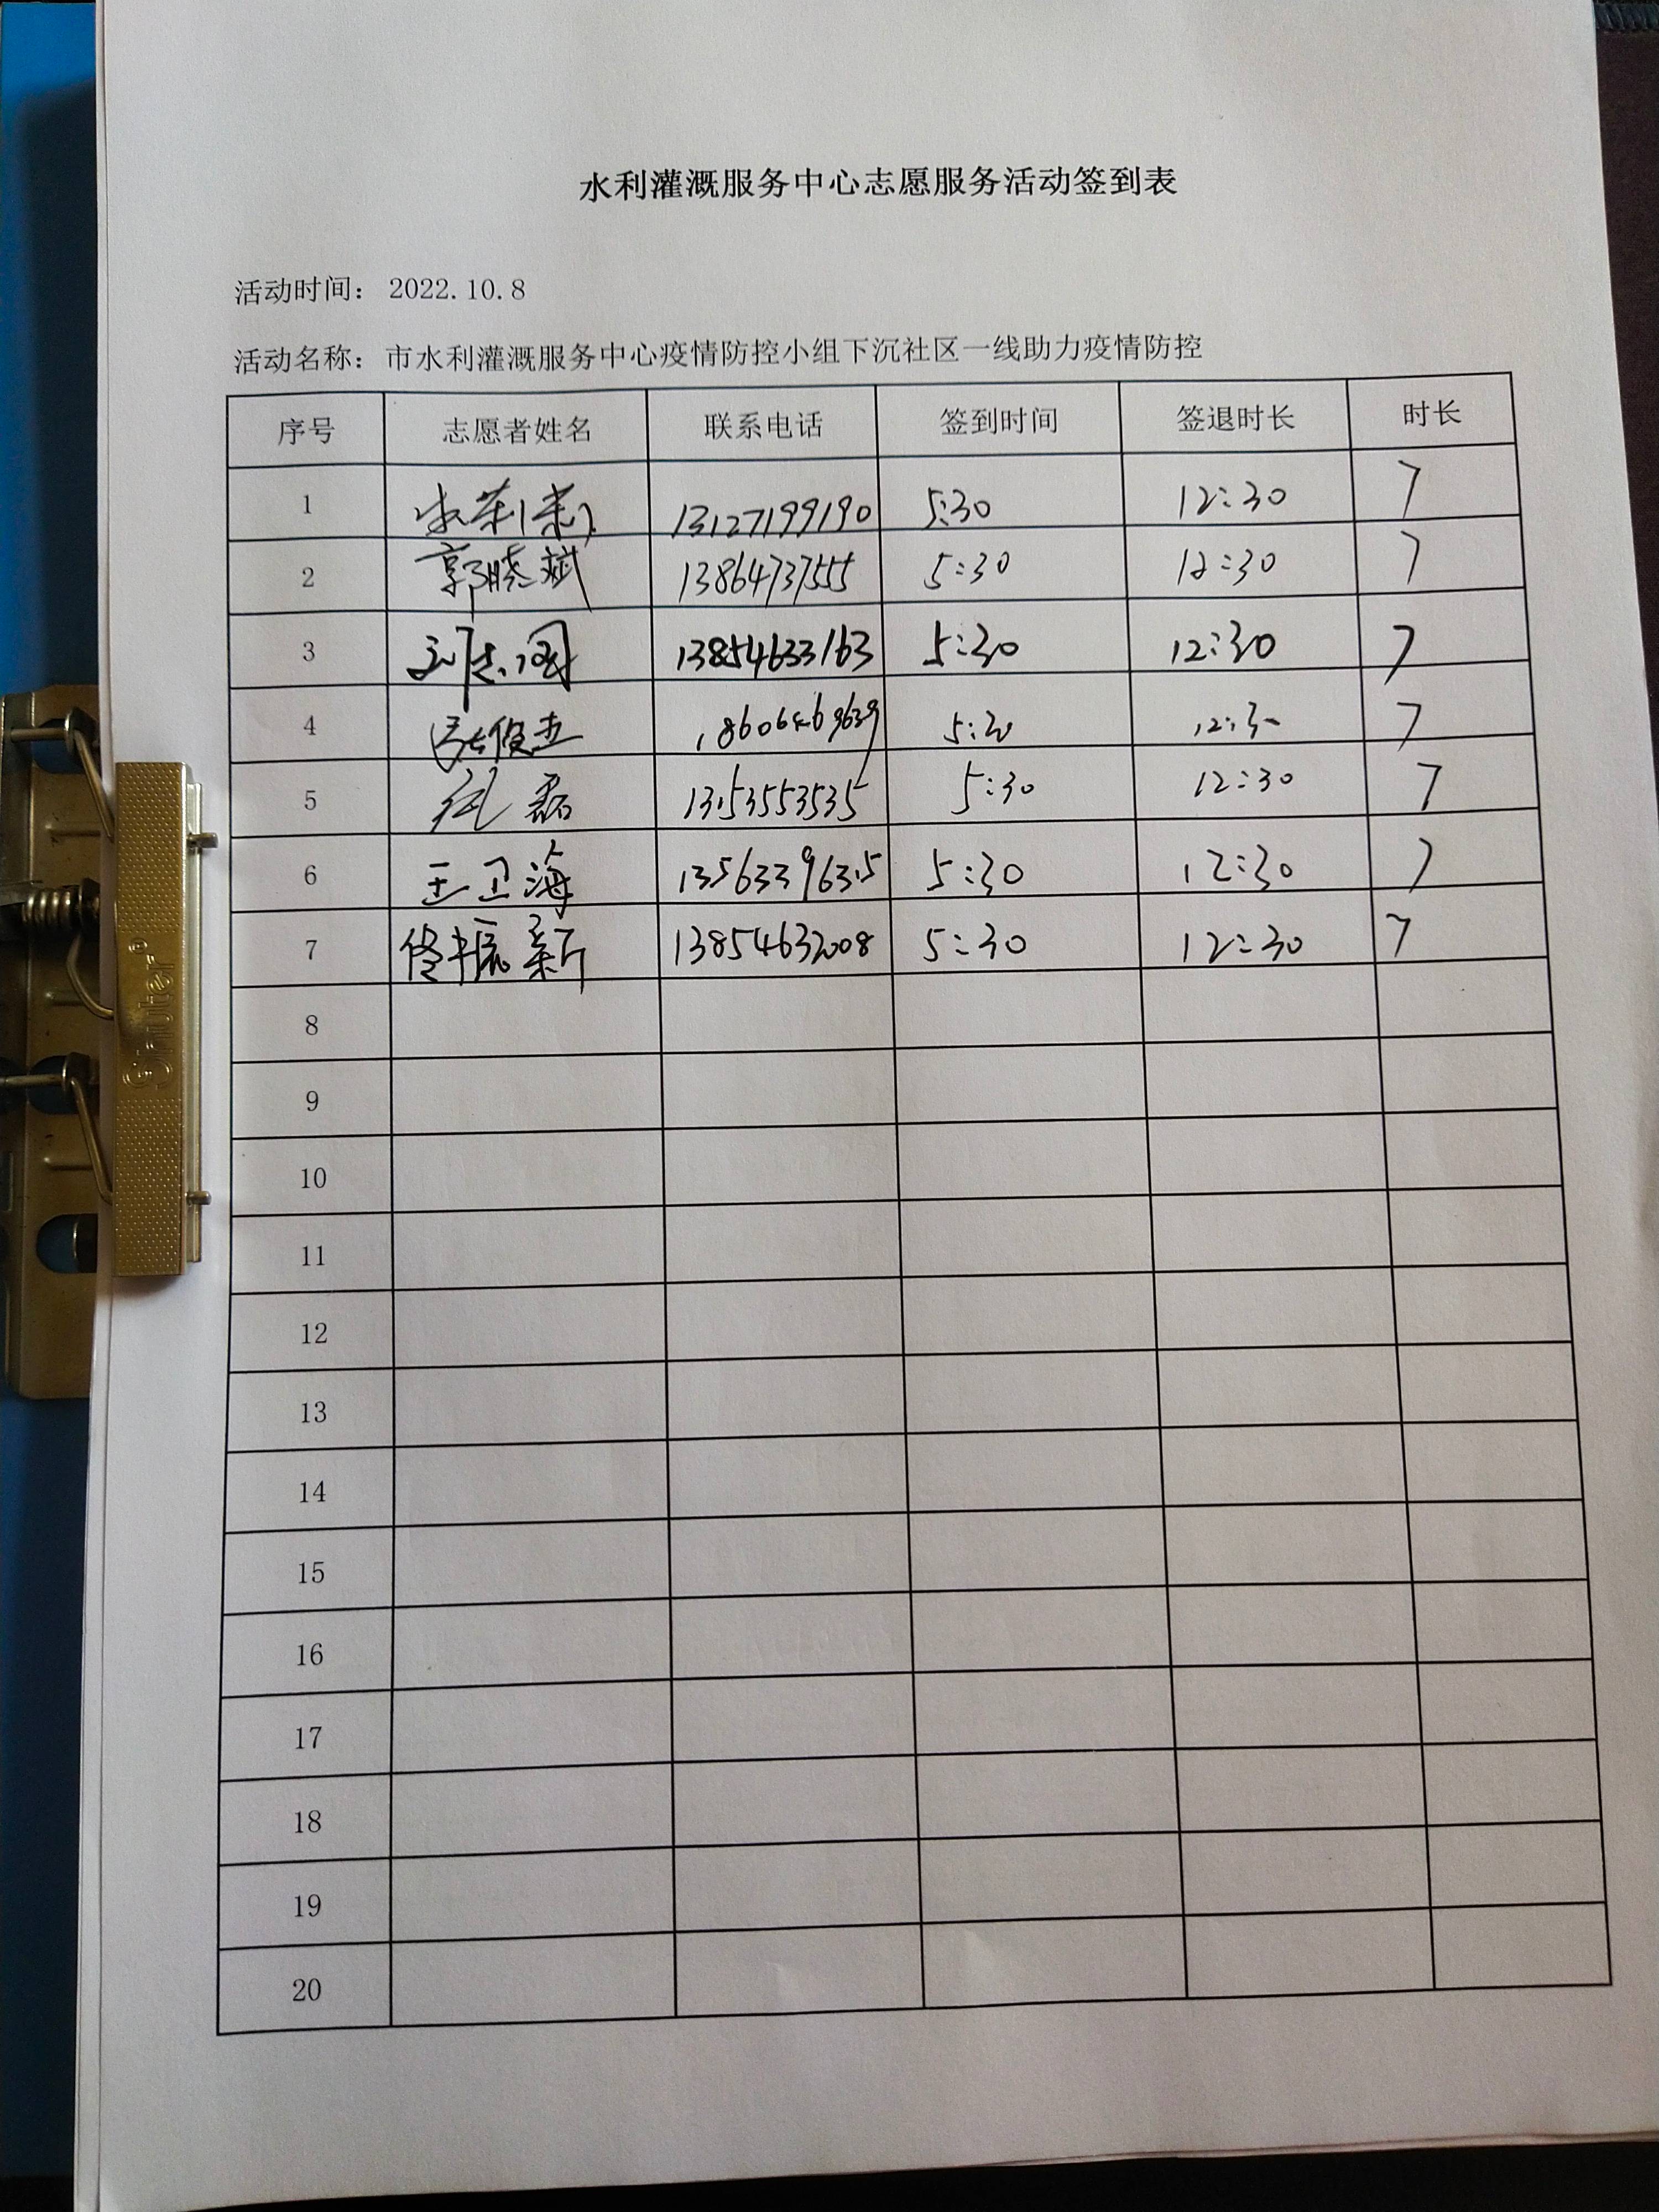 水利灌溉服务中心志愿服务活动签到表
活动时间： 2022.10.8
活动名称：市水利灌溉服务中心疫情防控小组下沉社区一线助力疫情防控
序号 志愿者姓名 联系电话 签到时间 签退时长 时长
1 13127199190 5:30 12:30 7
2 郭晓斌 13864737555 5:30 12:30 7
3 13854633163 5:30 12:30 7
4 18606469639 5:30 12:30 7
5 13153553535 5:30 12:30 7
6 王卫海 13563396315 5:30 12:30 7
7 佟振新 13854632008 5:30 12:30 7
8
9
10
11
12
13
14
15
16
17
18
19
20
Shuter®